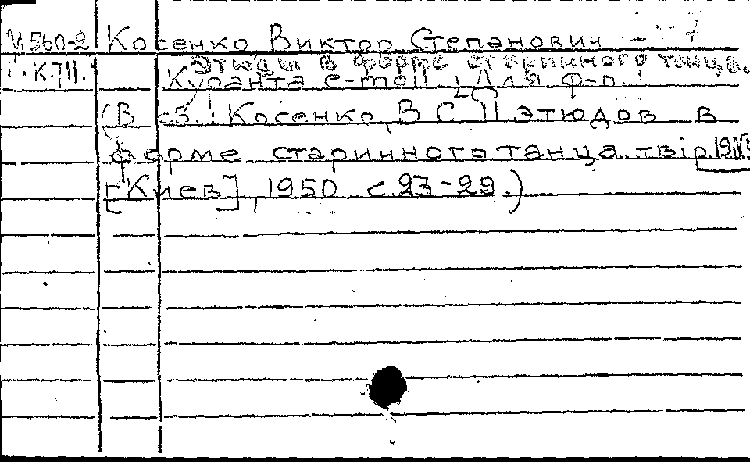 М560-2 Косенко Виктор Степанович –
Этюды в форме старинного танца.
К711. Куранта e-moll. Для ф-п.
(В сб.: Косенко, В С. 11 этюдов в
форме старинного танца. твір 19
[Киев], 1950 с.23-29.)